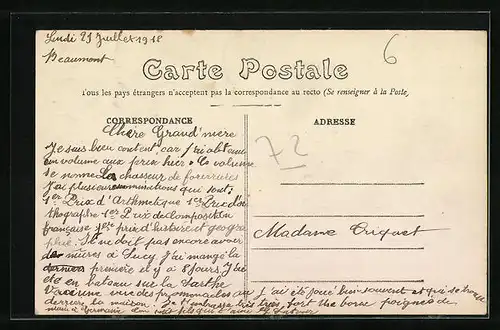 Lundi 23 Juillet 1918
Beaumont
6
Carte Postale
Tous les pays étrangers n'acceptent pas la correspondance au recto (Se renseigner à la Poste)
CORRESPONDANCE
ADRESSE
72
Chère Grand'mère
Je suis bien content, car j'ai obtenu
un volume aux prix hier. Ce volume
se nomme chasseur de fourrures
J'ai plusieurs nominations qui sont:
1er Prix d'Arthmetique 1er Prix d'or
thographe 1er Prix de composition
française 1er prix d'histoire et géogra
phie. Il ne doit pas encore avoir
des mûres à Lucy J'ai mangé la
première il y a 8 jours. J'ai
été en bateau sur la Sarthe
une des promenades au
derrier la maison. Je t'embrasse très
fort
J'ai été joué bien souvent et qui se trouve
très, fort the borse poignée de
Madame Criquet